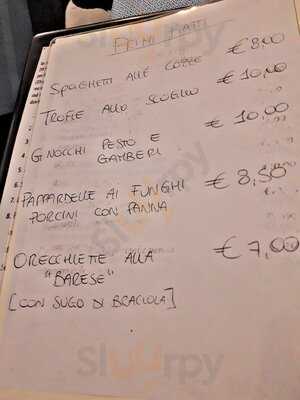 PRIMI PIATTI
SPAGHETTI ALLE COZZE €8,00
TROFIE ALLO SCOGLIO €10,00
GNOCCHI PESTO E GAMBERI €10,00
PAPPARDELLE AI FUNGHI €8,50
PORCINI CON PANNA
ORECCHIETTE ALLA €7,00
"BARESE"
[CON SUGO DI BRACIOLA]
sluurpy
sluurpy